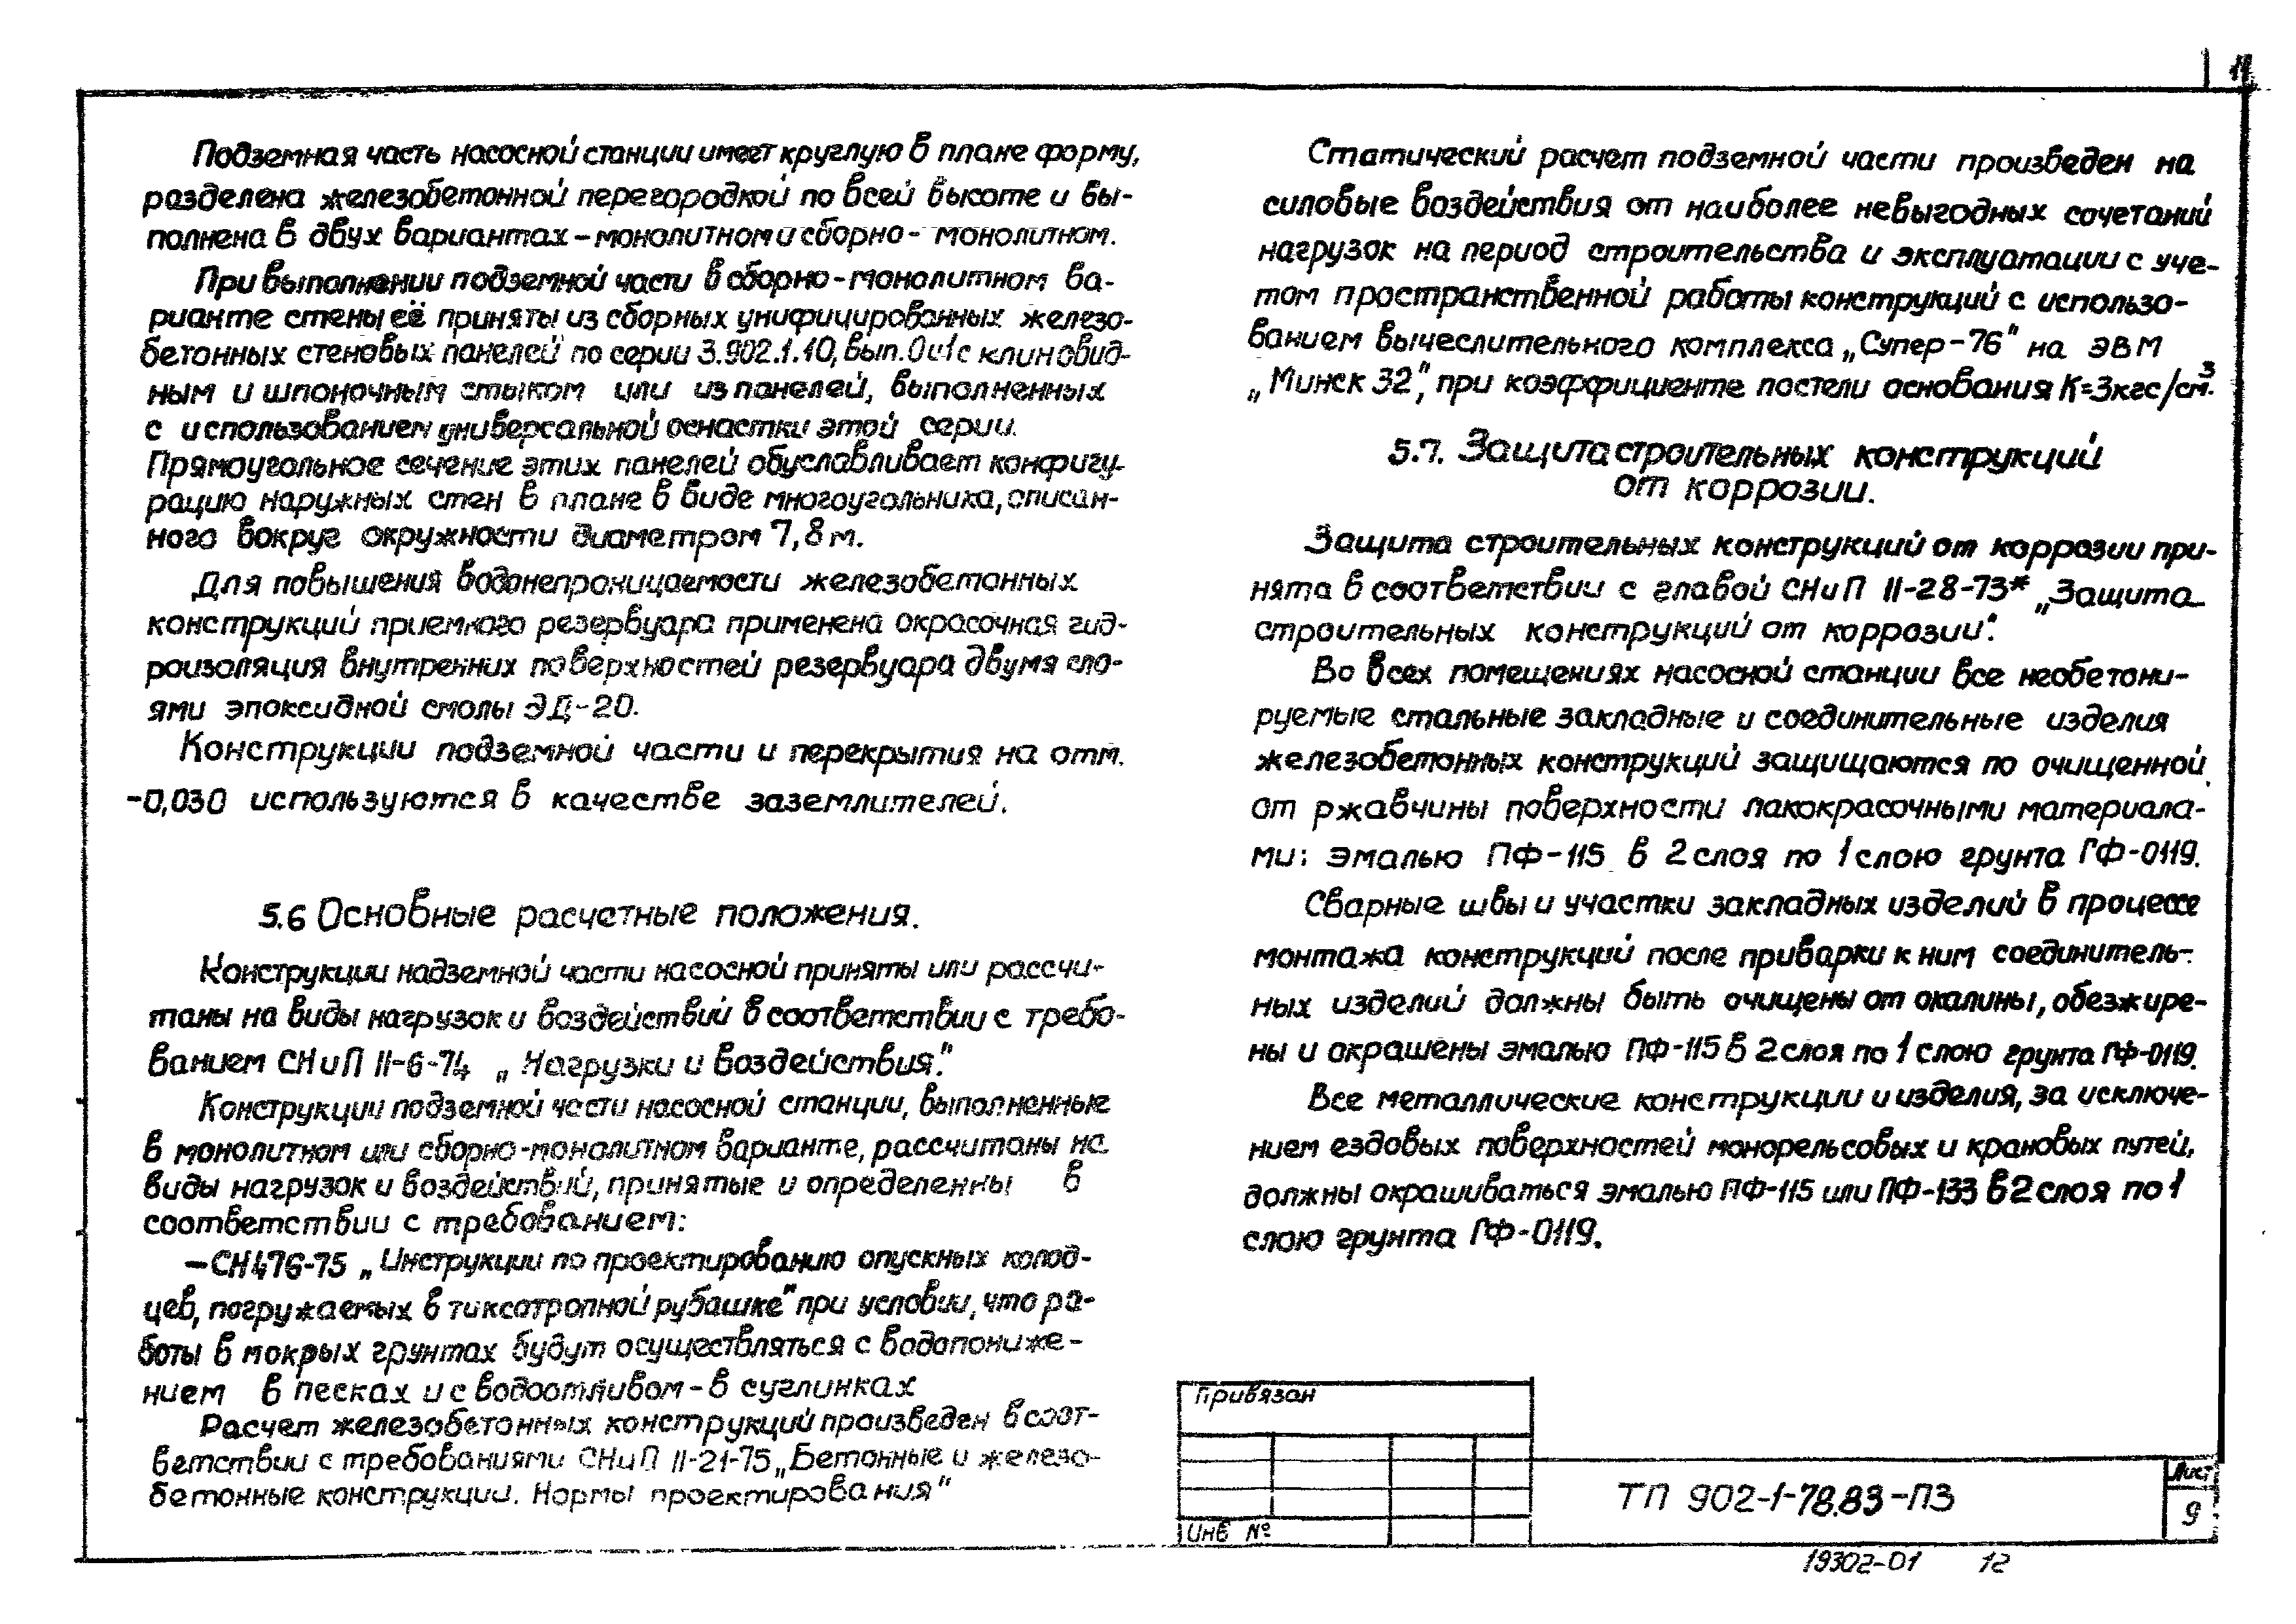 11
Подземная часть насосной станции имеет круглую в плане форму,
разделена железобетонной перегородкой по всей высоте и вы-
полнена в двух вариантах – монолитном и сборно - монолитном.
При выполнении подземной части в сборно-монолитном ва-
рианте стены её приняты из сборных унифицированных железо-
бетонных стеновых панелей по серии 3.902.1.10, вып. 0 и 1 с клиновид-
ным и шпоночным стыком или из панелей, выполненных
с использованием универсальной оснастки этой серии.
Прямоугольное сечение этих панелей обуславливает конфигу-
рацию наружных стен в плане в виде многоугольника, описан-
ного вокруг окружности диаметром 7,8 м.
Для повышения водонепроницаемости железобетонных
конструкций приемного резервуара применена окрасочная гид-
роизоляция внутренних поверхностей резервуара двумя сло-
ями эпоксидной смолы ЭД-20.
Конструкции подземной части и перекрытия на отм.
-0,030 используются в качестве заземлителей.
5.6 Основные расчетные положения.
Конструкции надземной части насосной приняты или рассчи-
таны на виды нагрузок и воздействий в соответствии с требо-
ванием СНиП II-6-74 „Нагрузки и воздействия".
Конструкции подземной части насосной станции, выполненные
в монолитном или сборно-монолитном варианте, рассчитаны на
виды нагрузок и воздействий, принятые и определенны в
соответствии с требованием:
– СН 476-75 „Инструкции по проектированию опускных колод-
цев, погружаемых в тиксотропной рубашке" при условии, что ра-
боты в мокрых грунтах будут осуществляться с водопониже-
нием в песках и с водоотливом - в суглинках
Расчет железобетонных конструкций произведен в соот-
ветствии с требованиями СНиП II-21-75 „Бетонные и железо-
бетонные конструкции. Нормы проектирования"
Статический расчет подземной части произведен на
силовые воздействия от наиболее невыгодных сочетаний
нагрузок на период строительства и эксплуатации с уче-
том пространственной работы конструкций с использо-
ванием вычеслительного комплекса „Супер-76" на ЭВМ
„Минск 32", при коэффициенте постели основания К=3кгс/см³.
5.7. Защита строительных конструкций
от коррозии.
Защита строительных конструкций от коррозии при-
нята в соответствии с главой СНиП II-28-73* „Защита
строительных конструкций от коррозии".
Во всех помещениях насосной станции все необетони-
руемые стальные закладные и соединительные изделия
железобетонных конструкций защищаются по очищенной
от ржавчины поверхности лакокрасочными материала-
ми: эмалью ПФ-115 в 2 слоя по 1 слою грунта ГФ-0119.
Сварные швы и участки закладных изделий в процессе
монтажа конструкций после приварки к ним соединитель-
ных изделий должны быть очищены от окалины, обезжире-
ны и окрашены эмалью ПФ-115 в 2 слоя по 1 слою грунта ГФ-0119.
Все металлические конструкции и изделия, за исключе-
нием ездовых поверхностей монорельсовых и крановых путей,
должны окрашиваться эмалью ПФ-115 или ПФ-133 в 2 слоя по 1
слою грунта ГФ-0119.
Привязан
Инв №
ТП 902-1-78.83-ПЗ
Лист
9
19302-01 12